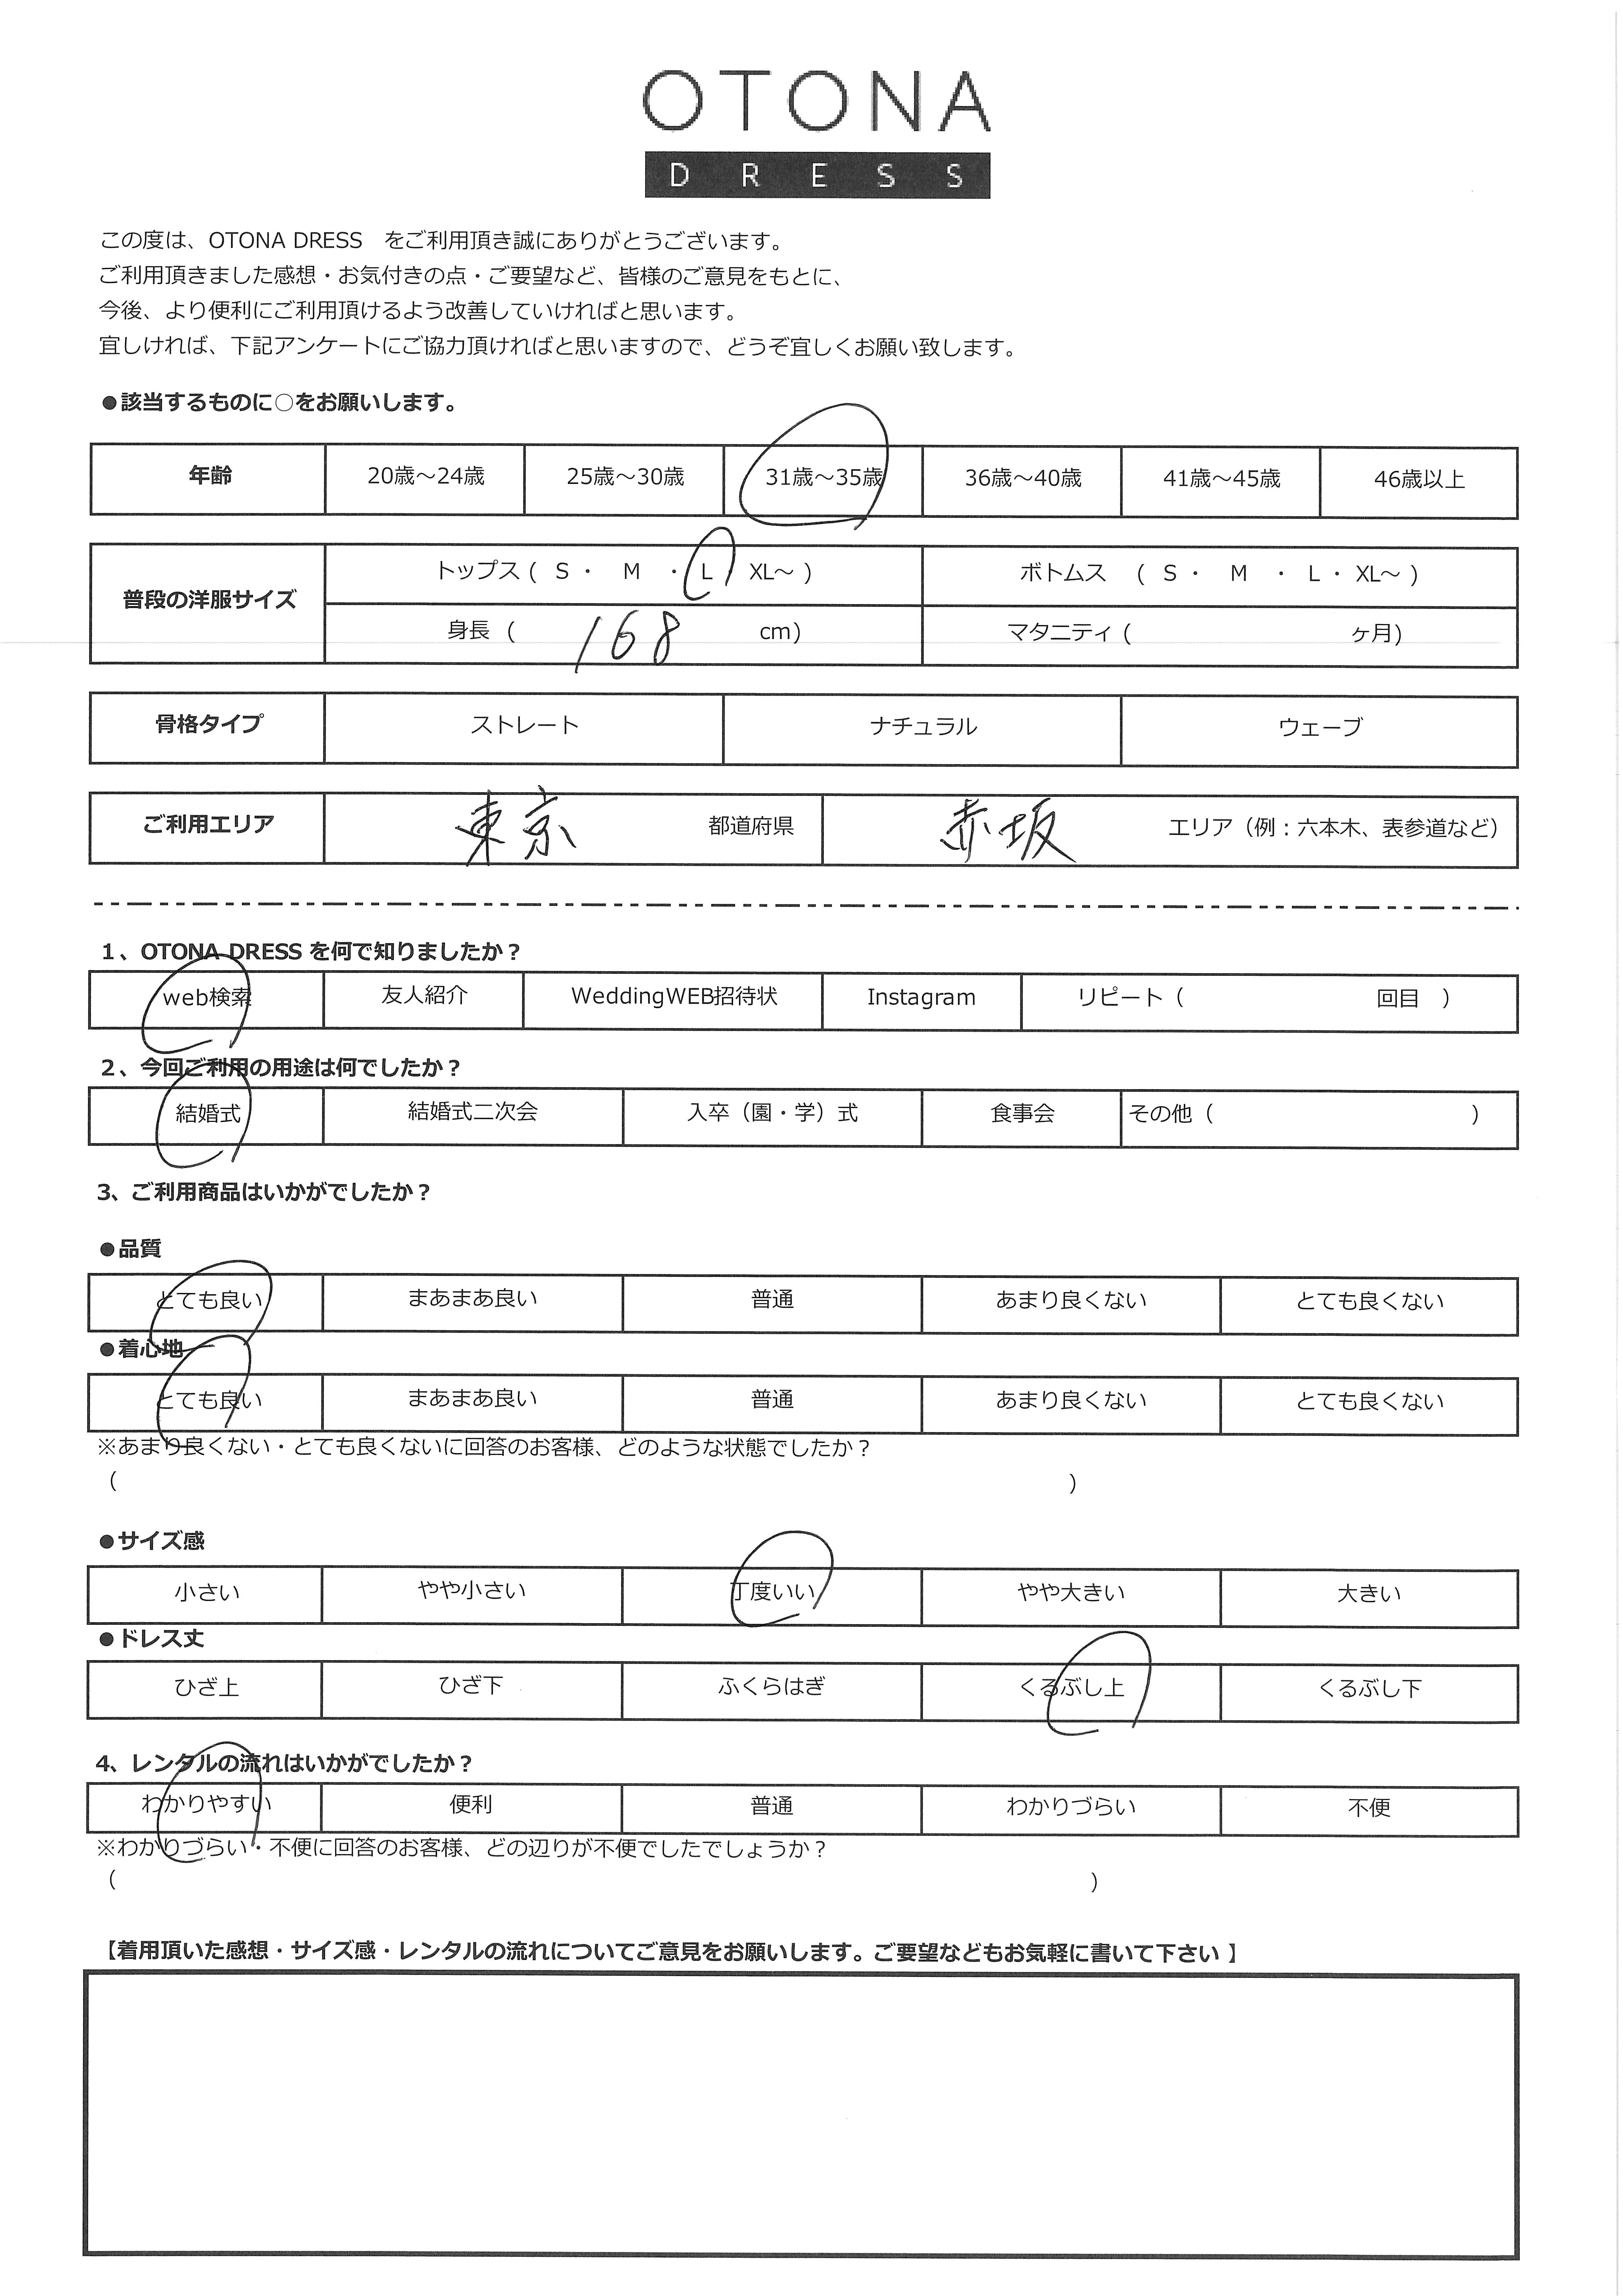 OTONA
DRESS
この度は、OTONA DRESS　をご利用頂き誠にありがとうございます。
ご利用頂きました感想・お気付きの点・ご要望など、皆様のご意見をもとに、
今後、より便利にご利用頂けるよう改善していければと思います。
宜しければ、下記アンケートにご協力頂ければと思いますので、どうぞ宜しくお願い致します。
●該当するものに○をお願いします。
年齢 20歳～24歳 25歳～30歳 31歳～35歳 36歳～40歳 41歳～45歳 46歳以上
普段の洋服サイズ トップス ( S ・ M ・ L ・ XL～ ) ボトムス ( S ・ M ・ L ・ XL～ )
身長 ( 168 cm) マタニティ ( ヶ月)
骨格タイプ ストレート ナチュラル ウェーブ
ご利用エリア 東京 都道府県 赤坂 エリア（例：六本木、表参道など）
1、OTONA DRESS を何で知りましたか？
web検索 友人紹介 WeddingWEB招待状 Instagram リピート（ 回目 ）
2、今回ご利用の用途は何でしたか？
結婚式 結婚式二次会 入卒（園・学）式 食事会 その他（ ）
3、ご利用商品はいかがでしたか？
●品質
とても良い まあまあ良い 普通 あまり良くない とても良くない
●着心地
とても良い まあまあ良い 普通 あまり良くない とても良くない
※あまり良くない・とても良くないに回答のお客様、どのような状態でしたか？
（ ）
●サイズ感
小さい やや小さい 丁度いい やや大きい 大きい
●ドレス丈
ひざ上 ひざ下 ふくらはぎ くるぶし上 くるぶし下
4、レンタルの流れはいかがでしたか？
わかりやすい 便利 普通 わかりづらい 不便
※わかりづらい・不便に回答のお客様、どの辺りが不便でしたでしょうか？
（ ）
【着用頂いた感想・サイズ感・レンタルの流れについてご意見をお願いします。ご要望などもお気軽に書いて下さい 】